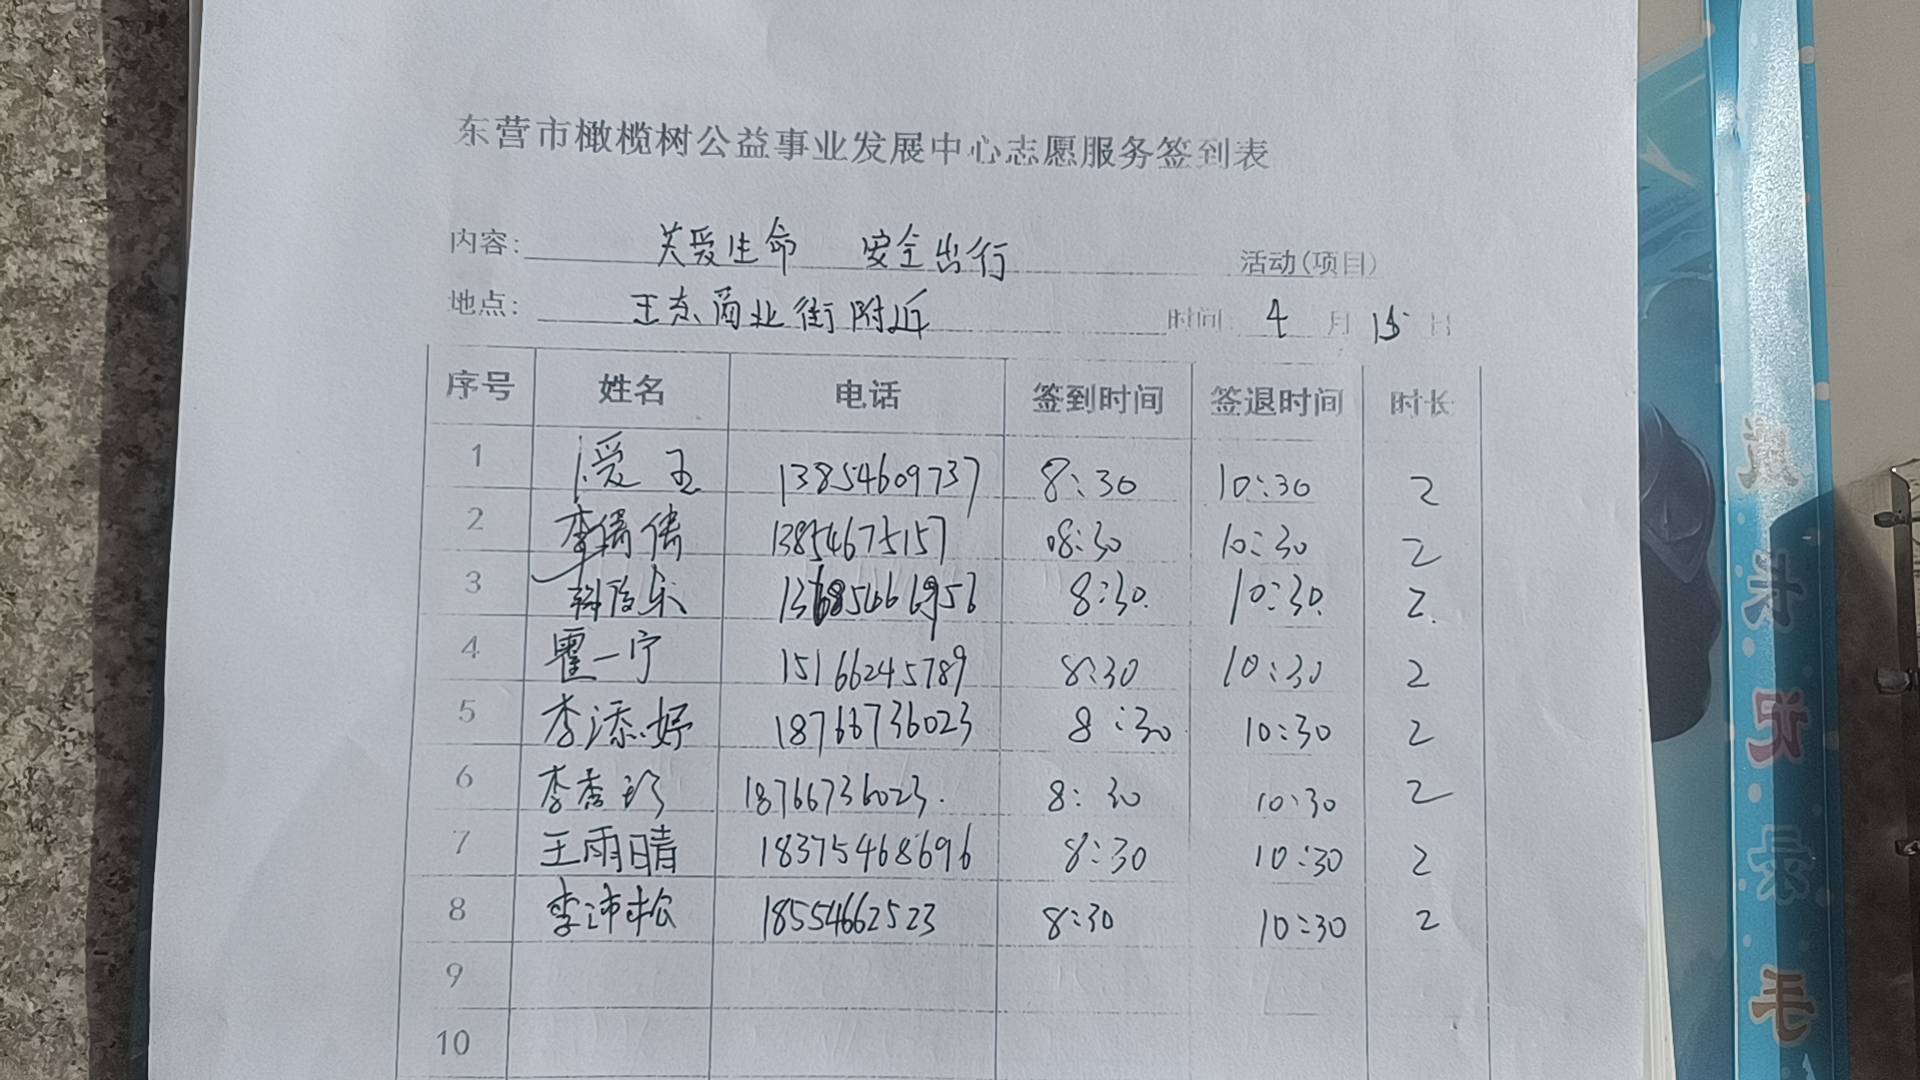 东营市橄榄树公益事业发展中心志愿服务签到表
内容: 关爱生命 安全出行 活动(项目)
地点: 王东商业街附近 时间: 4 月 15 日
序号 姓名 电话 签到时间 签退时间 时长
1 13854609737 8:30 10:30 2
2 李倩倩 13854675157 08:30 10:30 2
3 8:30 10:30 2
4 霍一宁 15166245789 8:30 10:30 2
5 李添妤 18766736023 8:30 10:30 2
6 李秀珍 18766736023 8:30 10:30 2
7 王雨晴 18375468696 8:30 10:30 2
8 李沛松 18554662523 8:30 10:30 2
9
10